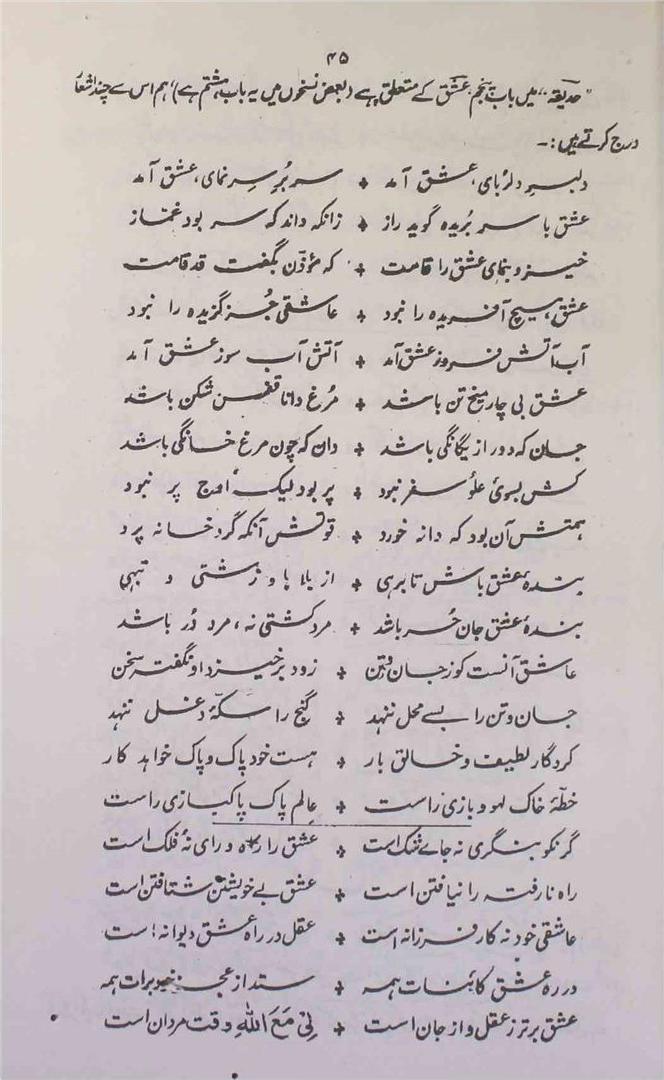 ۴۵
"حدیقہ" میں باب پنجم عشق کے متعلق ہے (بعض نسخوں میں یہ باب ہشتم ہے)، ہم اس سے چند اشعار
درج کرتے ہیں :۔
دلبرِ دلربای، عشق آمد + سر بُر سِر نمای، عشق آمد
عشق با سر بُریدہ گوید راز + زانکہ داند کہ سر بود غماز
خیز و بنمای عشق را قامت + کہ مؤذّن بگفت قد قامت
عشق ہیچ آفریدہ را نبود + عاشقی جُز گزیدہ را نبود
آب آتش فروز عشق آمد + آتش آب سوز عشق آمد
عشق بی چار میخ تن باشد + مُرغ دانا قفس شکن باشد
جان کہ دور از یگانگی باشد + دان کہ چون مرغ خانگی باشد
کش بسوئ علوُ سفر نبود + پر بود لیک اوج پر نبود
ہمتش آن بود کہ دانہ خورد + قوتش آنکہ گرد خانہ پرد
بندہٴ عشق باش تا برہی + از بلاہا و زشتی و تبہی
بندہٴ عشق جان حُر باشد + مرد کشتی نہ، مرد دُر باشد
عاشق آنست کو ز جان و تن + زود برخیزد او نگفتہ سخن
جان و تن را بسے محل ننہد + گنج را سکّہٴ دغل ننہد
کردگار لطیف و خالق بار + ہست خود پاک و پاک خواہد کار
خطّہٴ خاک لہو و بازی راست + عالم پاک پاکبازی راست
گر نکو بنگری نہ جاے شک است + عشق را رہ و رای نُہ فلک است
راہ نارفتہ را نیافتن است + عشق بے خویشتن شتافتن است
عاشقی خود نہ کار فرزانہ است + عقل در راہ عشق دیوانہ است
در رہ عشق کائنات ہمہ + ستد از عجز برات ہمہ
عشق برتر ز عقل و از جان است + لِیْ مَعَ اللهِ وقت مردان است